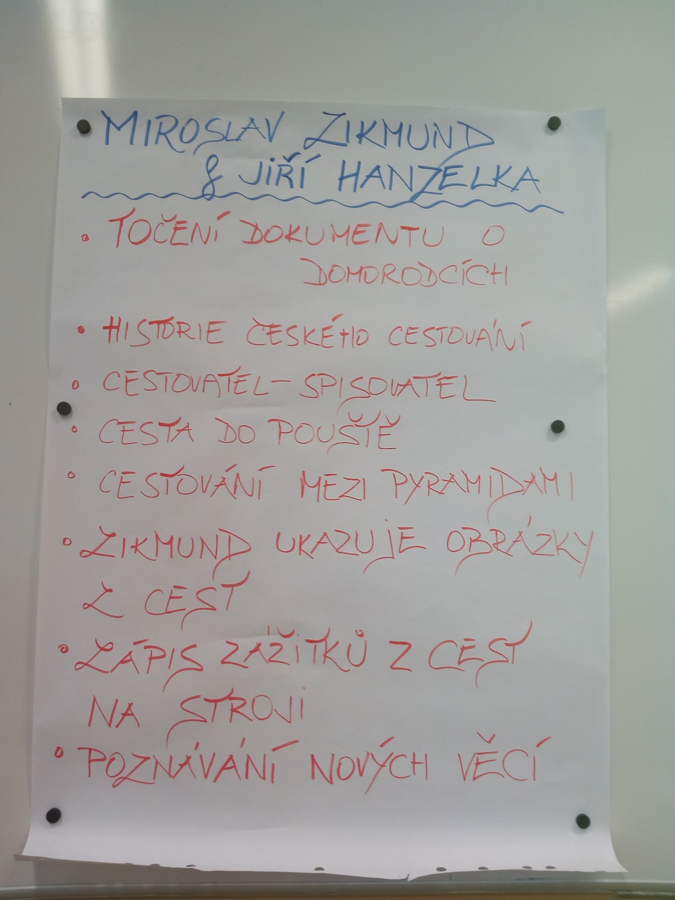 MIROSLAV ZIKMUND
& JIŘÍ HANZELKA
• TOČENÍ DOKUMENTU O
DOMORODCÍCH
• HISTORIE ČESKÉHO CESTOVÁNÍ
• CESTOVATEL-SPISOVATEL
• CESTA DO POUŠTĚ
• CESTOVÁNÍ MEZI PYRAMIDAMI
• ZIKMUND UKAZUJE OBRÁZKY
Z CEST
• ZÁPIS ZÁŽITKŮ Z CEST
NA STROJI
• POZNÁVÁNÍ NOVÝCH VĚCÍ